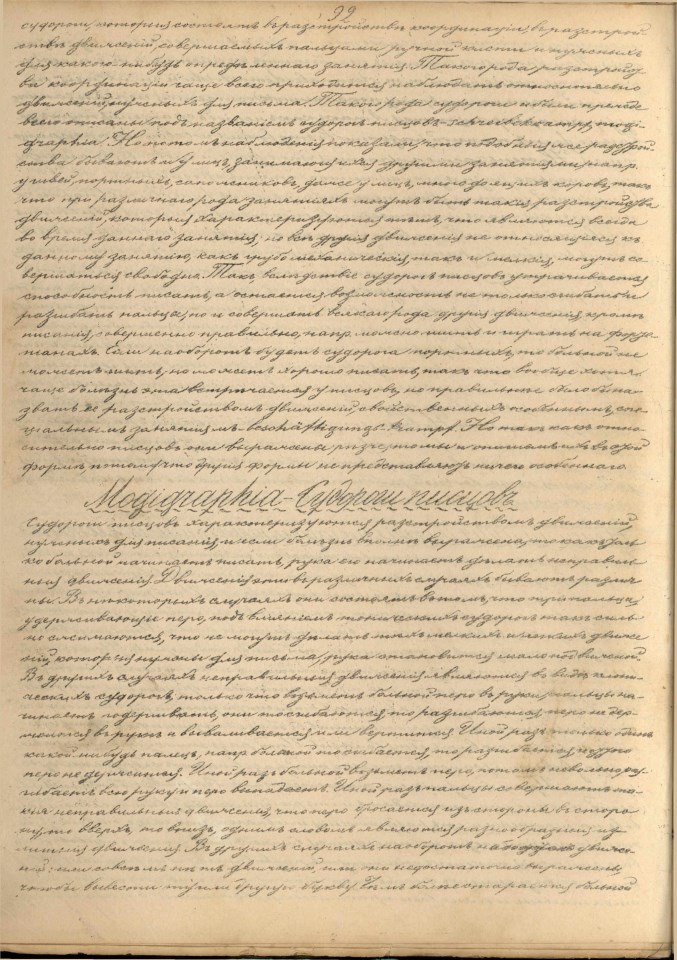 99
судороги, которыя состоятъ въ разстройствѣ координаціи, въ разстрой-
ствѣ движеній, совершаемыхъ пальцами ручной кисти и нужныхъ
для какого нибудь опредѣленнаго занятія. Такого рода разстройст
ва координаціи чаще всего приходится наблюдать относительно
движеній, нужныхъ для письма. Такого рода судороги и были прежде
всего описаны подъ названіемъ судорогъ писцовъ - schreibekrampf, mogi-
graphia. Но потомъ наблюденія показали, что подобныя же разстрой-
ства бываютъ и у лицъ, занимающихся другими занятіями напр.
у швей, портныхъ, сапожниковъ, даже у лицъ, много доящихъ коровъ, такъ
что при различнаго рода занятіяхъ могутъ быть такія разстройства
движеній, которыя характеризуются тѣмъ, что являются всегда
во время даннаго занятія; но всѣ другія движенія не относящіяся къ
данному занятію, какъ грубо механическія такъ и мелкія, могутъ со-
вершаться свободно. Такъ, вслѣдствіе судорогъ писцовъ утрачивается
способность писать, а остается возможность не только сгибать и
разгибать пальцы, но и совершать всякаго рода другія движенія кромѣ
писанія, совершенно правильно, напр. можно шить и играть на форте
піанахъ. Если наоборотъ будетъ судорога портныхъ, то больной не
можетъ шить, но можетъ хорошо писать, такъ что вообще хотя
чаще болѣзнь эта встрѣчается у писцовъ, но правильнѣе было бы на-
звать ее разстройствомъ движеній свойственныхъ особеннымъ, спе-
ціальнымъ занятіямъ - beschäftigungs-krampf. Но такъ какъ отно-
сительно писцовъ они выражены рѣзче, то мы и опишемъ ихъ въ этой
формѣ, потому что другія формы не представляютъ ничего особеннаго.
Mogigraphia - Судороги писцовъ
Судороги писцовъ характеризуются разстройствомъ движеній,
нужныхъ для писанія, и если болѣзнь вполнѣ выражена, то какъ толь-
ко больной начинаетъ писать, рука его начинаетъ дѣлать неправиль-
ныя движенія. Движенія эти въ различныхъ случаяхъ бываютъ различ
ны. Въ нѣкоторыхъ случаяхъ они состоятъ въ томъ, что три пальца,
удерживающіе перо, подъ вліяніемъ тоническихъ судорогъ такъ силь-
но сжимаются, что не могутъ дѣлать тѣхъ мелкихъ и легкихъ движе-
ній, которыя нужны для письма, рука становится мало подвижной.
Въ другихъ случаяхъ неправильныя движенія являются въ видѣ клони-
ческихъ судорогъ, только что возьметъ больной перо въ руки, пальцы на-
чинаетъ подергивать, они то сгибаются, то разгибаются, перо не дер-
жится въ рукѣ и вываливается или вертится. Иной разъ только одинъ
какой нибудь палецъ, напр. большой то сгибается, то разгибается, и
перо не держится. Иной разъ больной возьметъ перо, потомъ невольно ра-
згибаетъ всю руку и перо выпадаетъ. Иной разъ пальцы совершаютъ та-
кія неправильныя движенія, что перо бросается изъ стороны въ сторо-
ну, то вверхъ, то внизъ, однимъ словомъ являются разнообразныя из-
лишнія движенія. Въ другихъ случаяхъ наоборотъ движе-
ній: или совсѣмъ нѣтъ движеній, или они недостаточно выражены,
чтобы вывести ту или другую букву. Чѣмъ болѣе старается больной